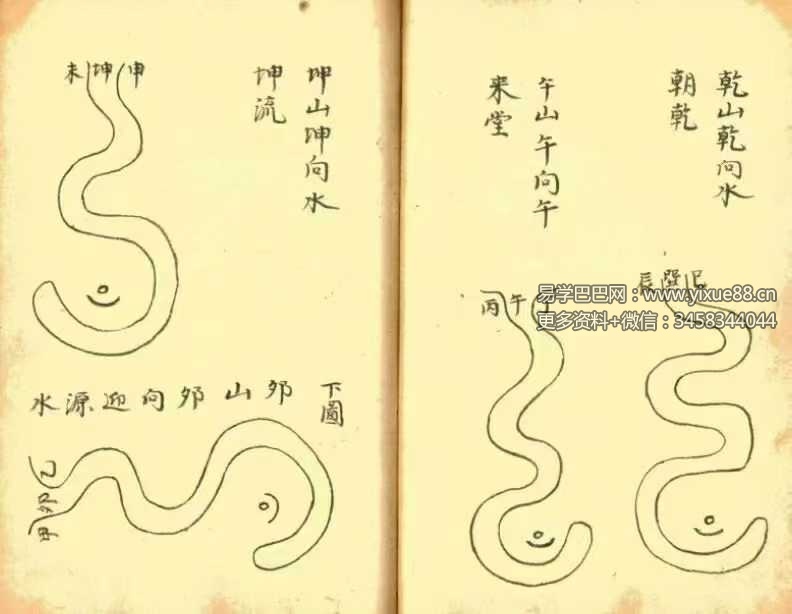 乾山乾向水
朝乾
辰巽巳
午山午向午
来堂
丙午丁
坤山坤向水
坤流
未坤申
下圖
卯山卯向迎源水
乙卯甲
易学巴巴网：www.yixue88.cn
更多资料+微信：3458344044